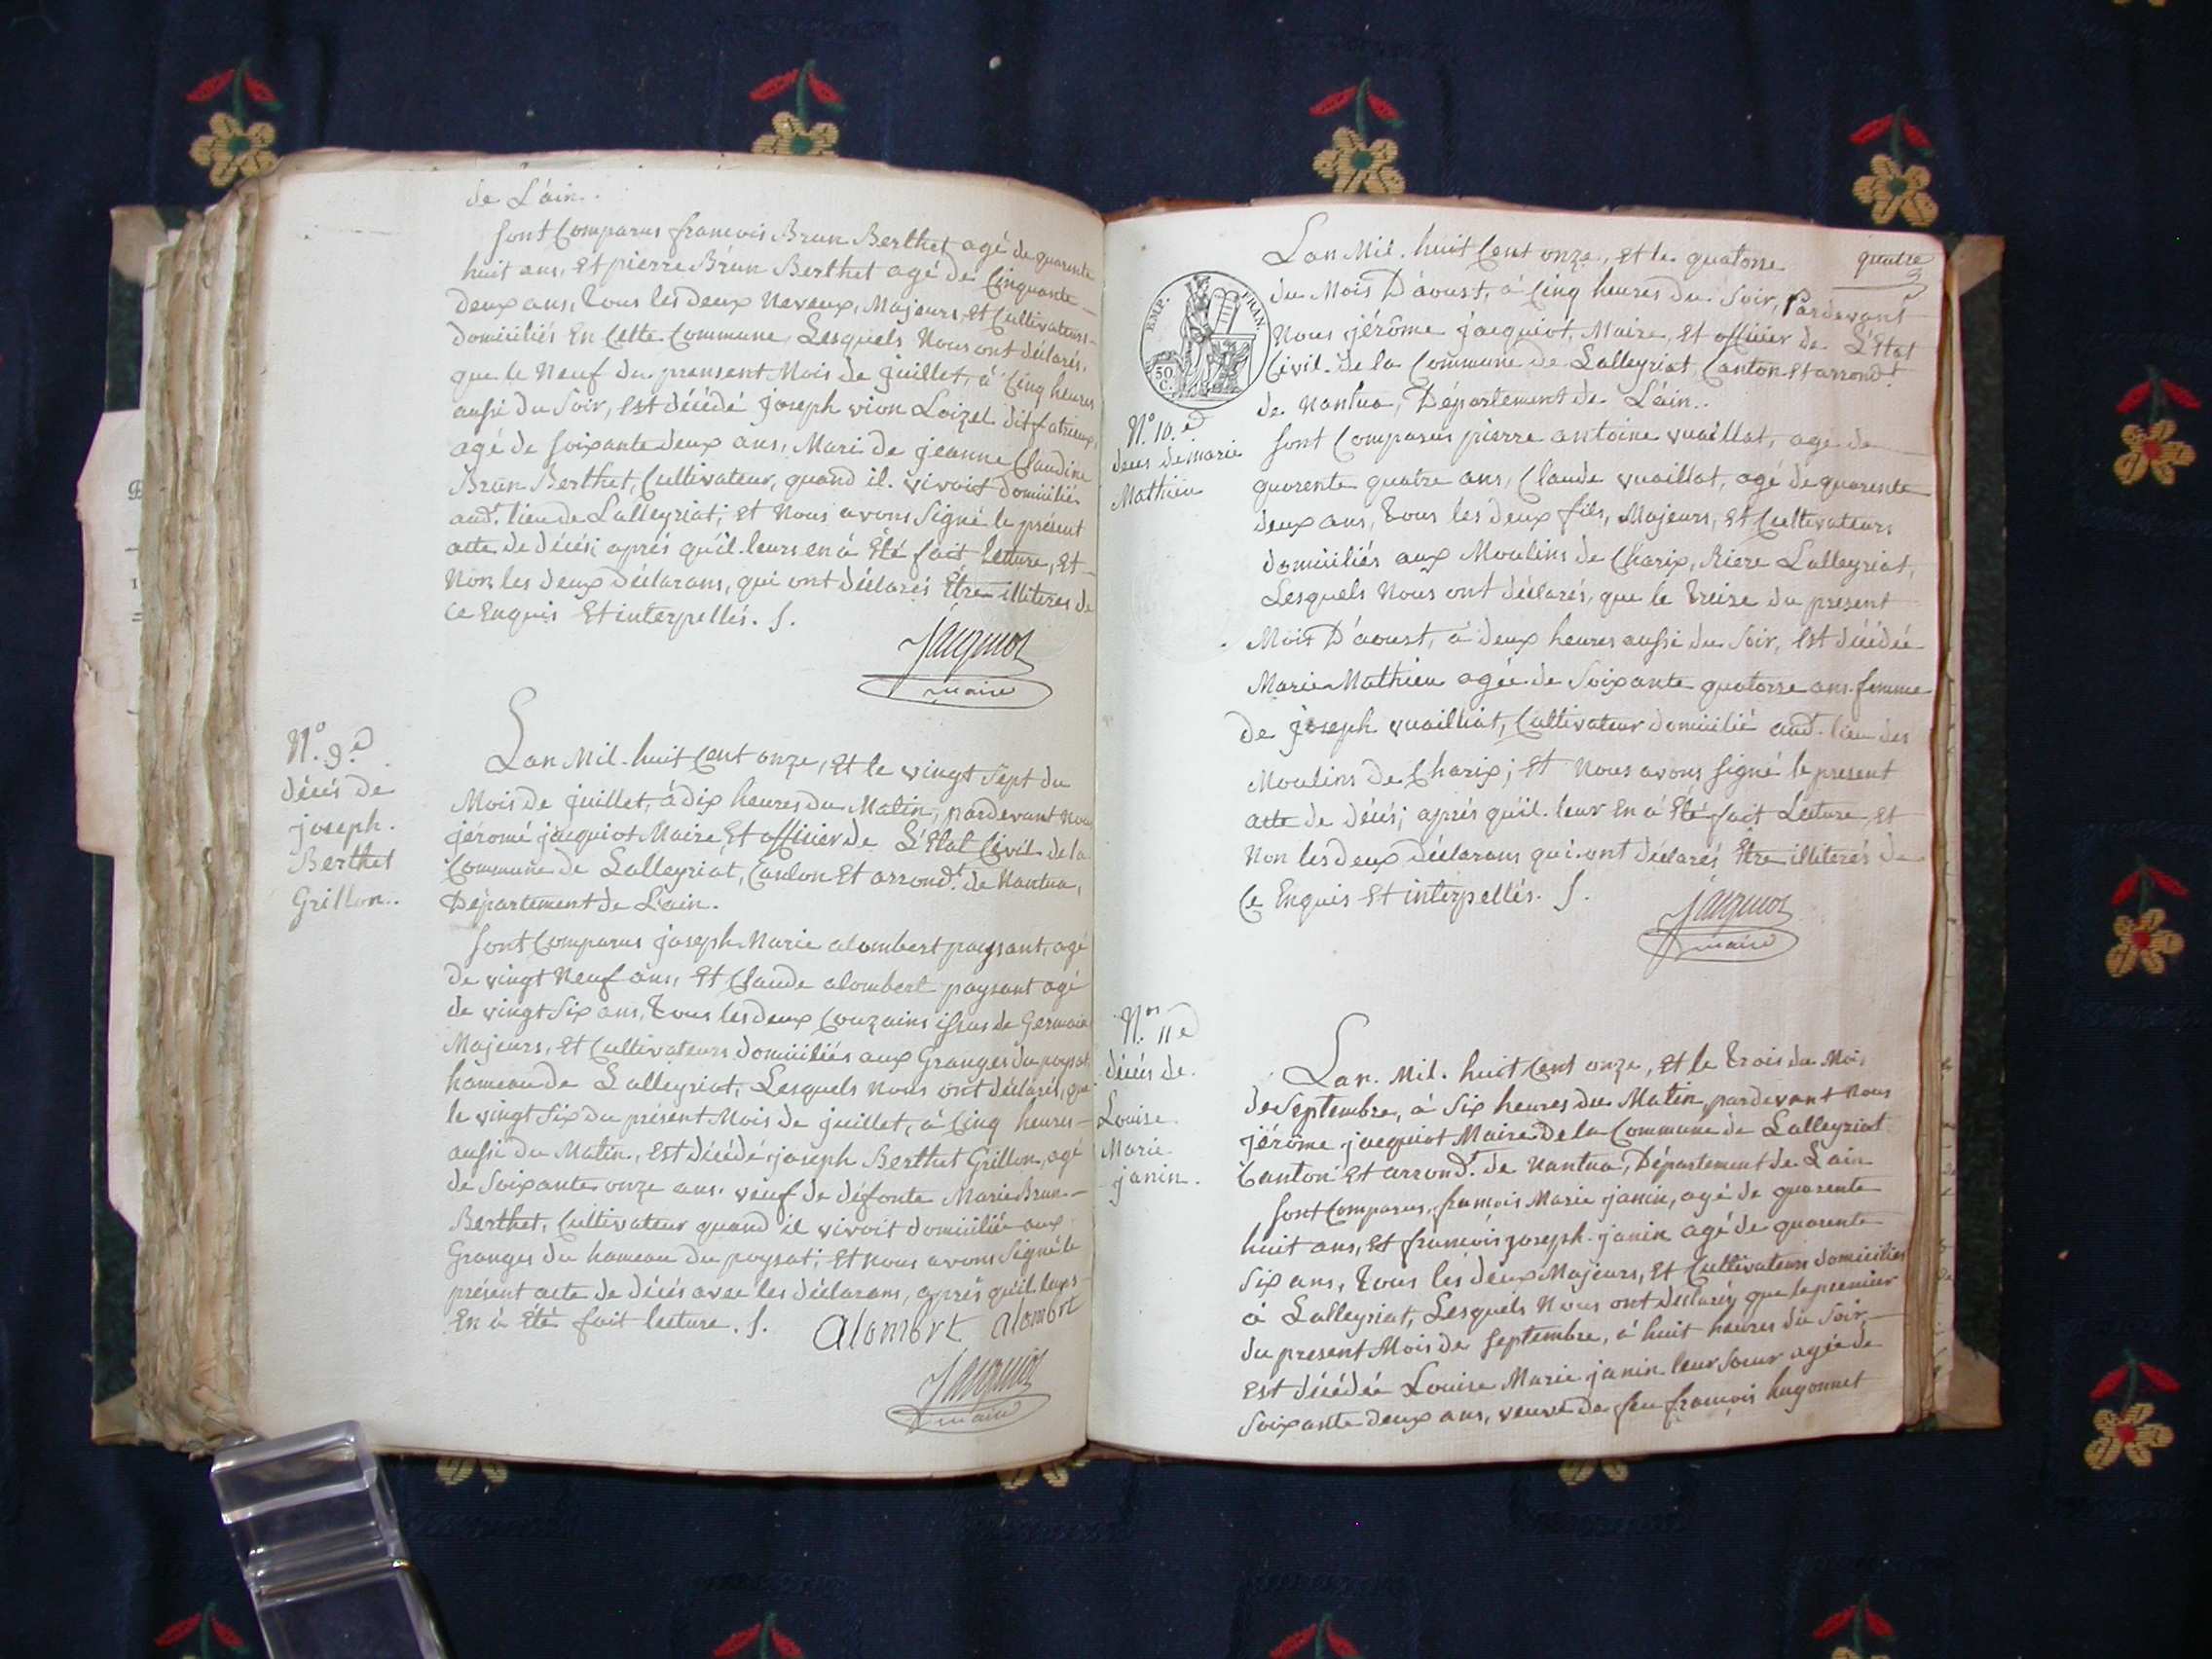 de L'ain..
sont Comparus francois Brun Berthet agé de quarente
huit ans, Et pierre Brun Berthet agé de Cinquante
deux ans, tous les deux Neveux, Majeurs, Et Cultivateurs
domiciliés En Cette Commune, Lesquels Nous ont déclarés,
que le Neuf du prensent Mois de juillet, à Cinq heures
aussi du Soir, Est décédé joseph vion Loizel dit
agé de soixante deux ans, Mari de jeanne Claudine
Brun Berthet, Cultivateur, quand il vivoit domicilié
aud.t lieu de Lalleyriat; et Nous avons Signé le présent
acte de décés; aprés qu'il leurs en à Eté fait lecture, Et
Non les deux déclarans, qui ont déclarés Être illiteres de
ce Enquis Et interpellés. S.
Jacquiot
maire
N.o 9.e
décés de
joseph.
Berthet
Grillon..
Lan Mil huit Cent onze, Et le vingt Sept du
Mois de juillet, à dix heures du Matin, pardevant nous
jéromé jacquiot Maire, Et officier de L'Etat Civil de la
Commune de Lalleyriat, Canton Et arrond.t de Nantua,
Département de L'ain.
sont Comparus joseph Marie alombert paysant, agé
de vingt Neuf ans, Et Claude alombert paysant agé
de vingt Six ans, tous les deux Couzains issus de Germain
Majeurs, Et Cultivateurs domiciliés aux Granges du poysat
hameau de Lalleyriat, Lesquels Nous ont déclarés, que
le vingt Six du présent Mois de juillet, à Cinq heures
aussi du Matin, Est décédé joseph Berthet Grillon, agé
de Soixante onze ans. veuf de défonte Marie Brun
Berthet, Cultivateur quand il vivoit domicilié aux
Granges du hameau du poysat; Et nous avons Signé le
présent acte de décés avec les déclarans, aprés qu'il leurs
En à Eté fait lecture. S. alombrt alombrt
Jacquiot
maire
quatre
Lan Mil huit Cent onze, Et le quatorze
du Mois D'aoust, à Cinq heures du Soir, Pardevant
Nous jérôme jacquiot, Maire, Et officier de L'Etat
Civil de la Commune de Lalleyriat, Canton Et arrond.t
de Nantua, Département de L'ain..
EMP. FRAN.
50
C.
N.o 10.e
deces de marie
Mathieu
sont Comparus pierre antoine vuaillat, agé de
quarente quatre ans, Claude vuaillat, agé de quarente
deux ans, tous les deux fils, Majeurs, Et Cultivateurs
domiciliés aux Moulins de Charix, Riere Lalleyriat,
Lesquels Nous ont déclarés, que le treize du present
Mois D'aoust, à deux heures aussi du Soir, Est décédée
Marie Mathieu agée de Soixante quatorze ans. femme
de joseph vuailliat, Cultivateur domicilié aud.t lieu des
Moulins de Charix; Et Nous avons signé le present
acte de décés; aprés qu'il leur En à Eté fait Lecture, Et
Non les deux déclarans qui ont déclarés Être illiterés de
Ce Enquis Et interpellés. S.
Jacquiot
maire
N.o 11e
décés de
Louise
Marie
janin.
Lan. Mil. huit Cent onze, Et le trois du Mois
de Septembre, à Six heures du Matin, pardevant nous
jérôme jacquiot Maire de la Commune de Lalleyriat
Canton Et arrond.t de Nantua, Département de L'ain
sont Comparus, françois Marie janin, agé de quarente
huit ans, Et francois joseph janin agé de quarente
Six ans, tous les deux Majeurs, Et Cultivateurs domiciliés
à Lalleyriat, Lesquels Nous ont déclarés que le premier
du present Mois de Septembre, à huit heures du Soir,
Est décédée Louise Marie janin leur Soeur agée de
Soixante deux ans, veuve de feu françois hugonnet